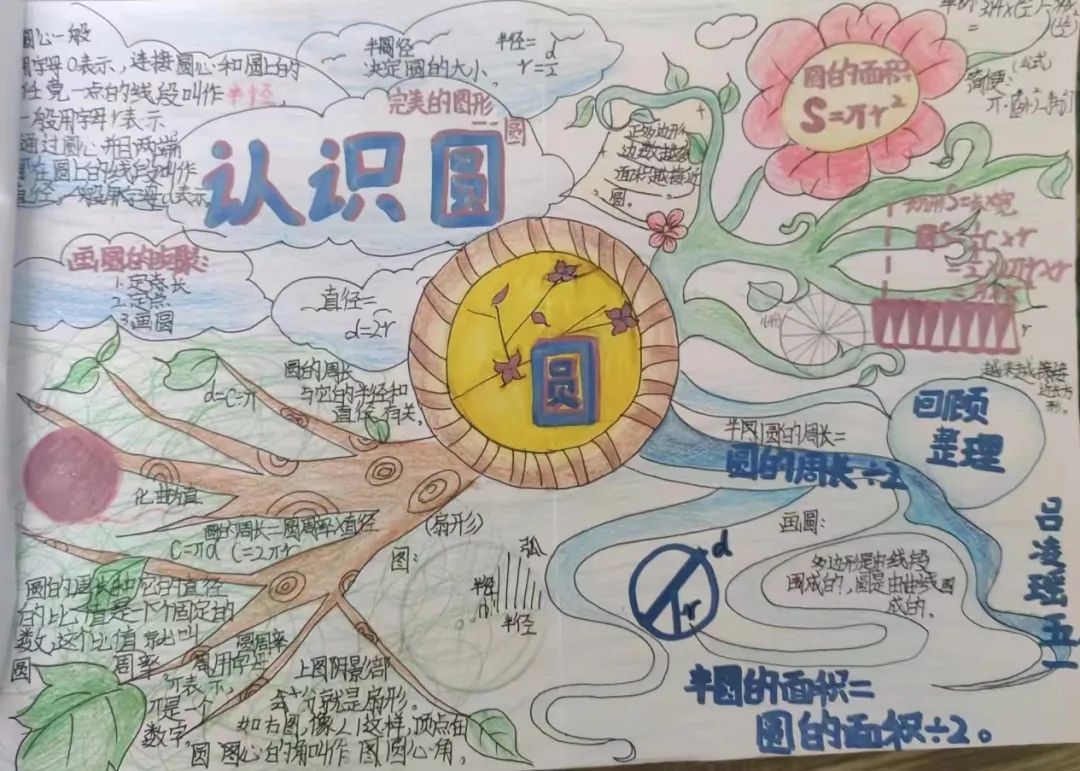 圆心一般
用字母O表示，连接圆心和圆上的
任意一点的线段叫作半径，
一般用字母r表示
通过圆心并且两端
都在圆上的线段叫作
直径，一般用字母d表示
半圆径
决定圆的大小
半径=d/2
r=d/2
完美的图形
——圆
认识圆
画圆的步骤：
1.定长
2.定点
3.画圆
直径=
d=2r
正多边形
边数越多
面积越接近
圆。
圆的面积
S=πr²
(公式)
简便：
S=长×宽
圆S=½C×r
=½×2πr×r
=πr²
r
越来越接近
长方形。
圆
圆的周长
与它的半径和
直径有关。
d=C÷π
化曲为直
圆的周长=圆周率×直径
C=πd C=2πr
圆的周长和它的直径
的比值是一个固定的
数，这个比值叫
圆周率
周用字母
π表示，
π是一个
数字
(扇形)
图：
弧
半径
半径
上图阴影部
分就是扇形。
如右图，像∠1这样，顶点在
圆心的角叫作圆心角。
半圆的周长=
圆的周长÷2
回顾
整理
画圆：
多边形是由线段
围成的，圆是由曲线围
成的。
d
r
半圆的面积=
圆的面积÷2。
吕凌瑶 五一